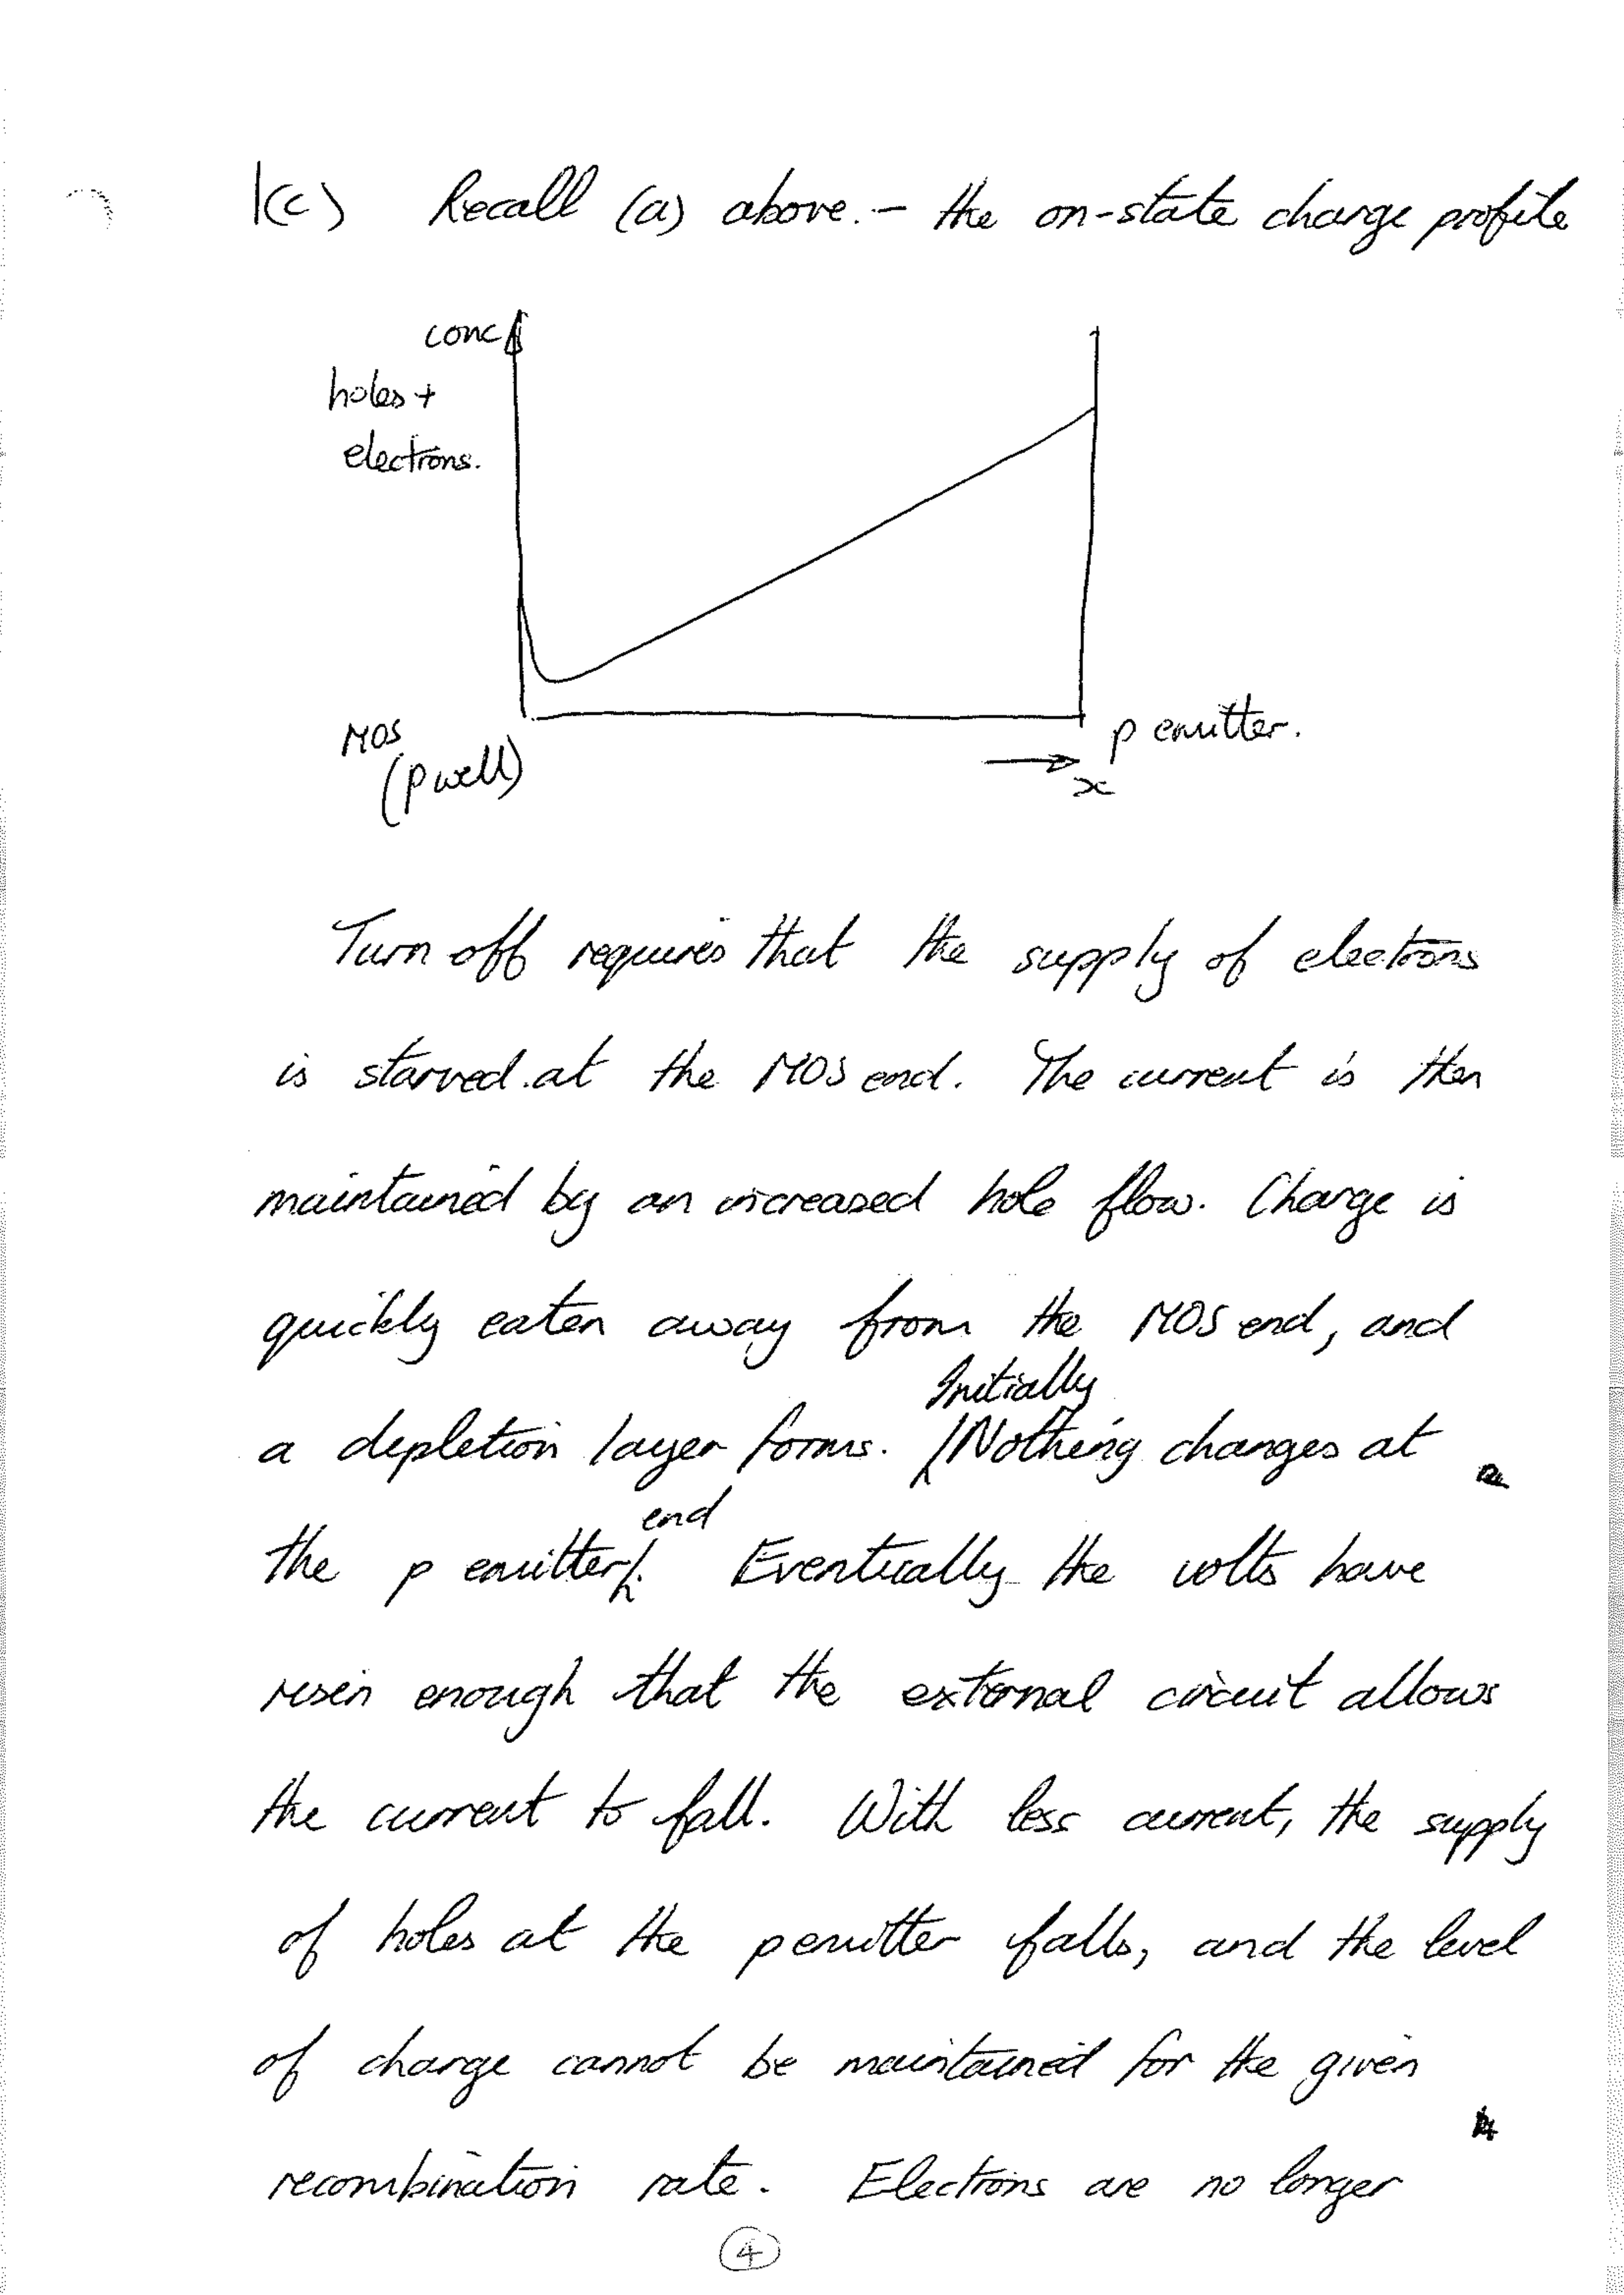 1(c) Recall (a) above. - the on-state charge profile
conc
holes +
electrons.
MOS
(p well)
p emitter.
x
Turn off requires that the supply of electrons
is starved at the MOS end. The current is then
maintained by an increased hole flow. Charge is
quickly eaten away from the MOS end, and
Initially
a depletion layer forms. Nothing changes at
end
the p emitter. Eventually the volts have
risen enough that the external circuit allows
the current to fall. With less current, the supply
of holes at the p emitter falls, and the level
of charge cannot be maintained for the given
recombination rate. Electrons are no longer
4